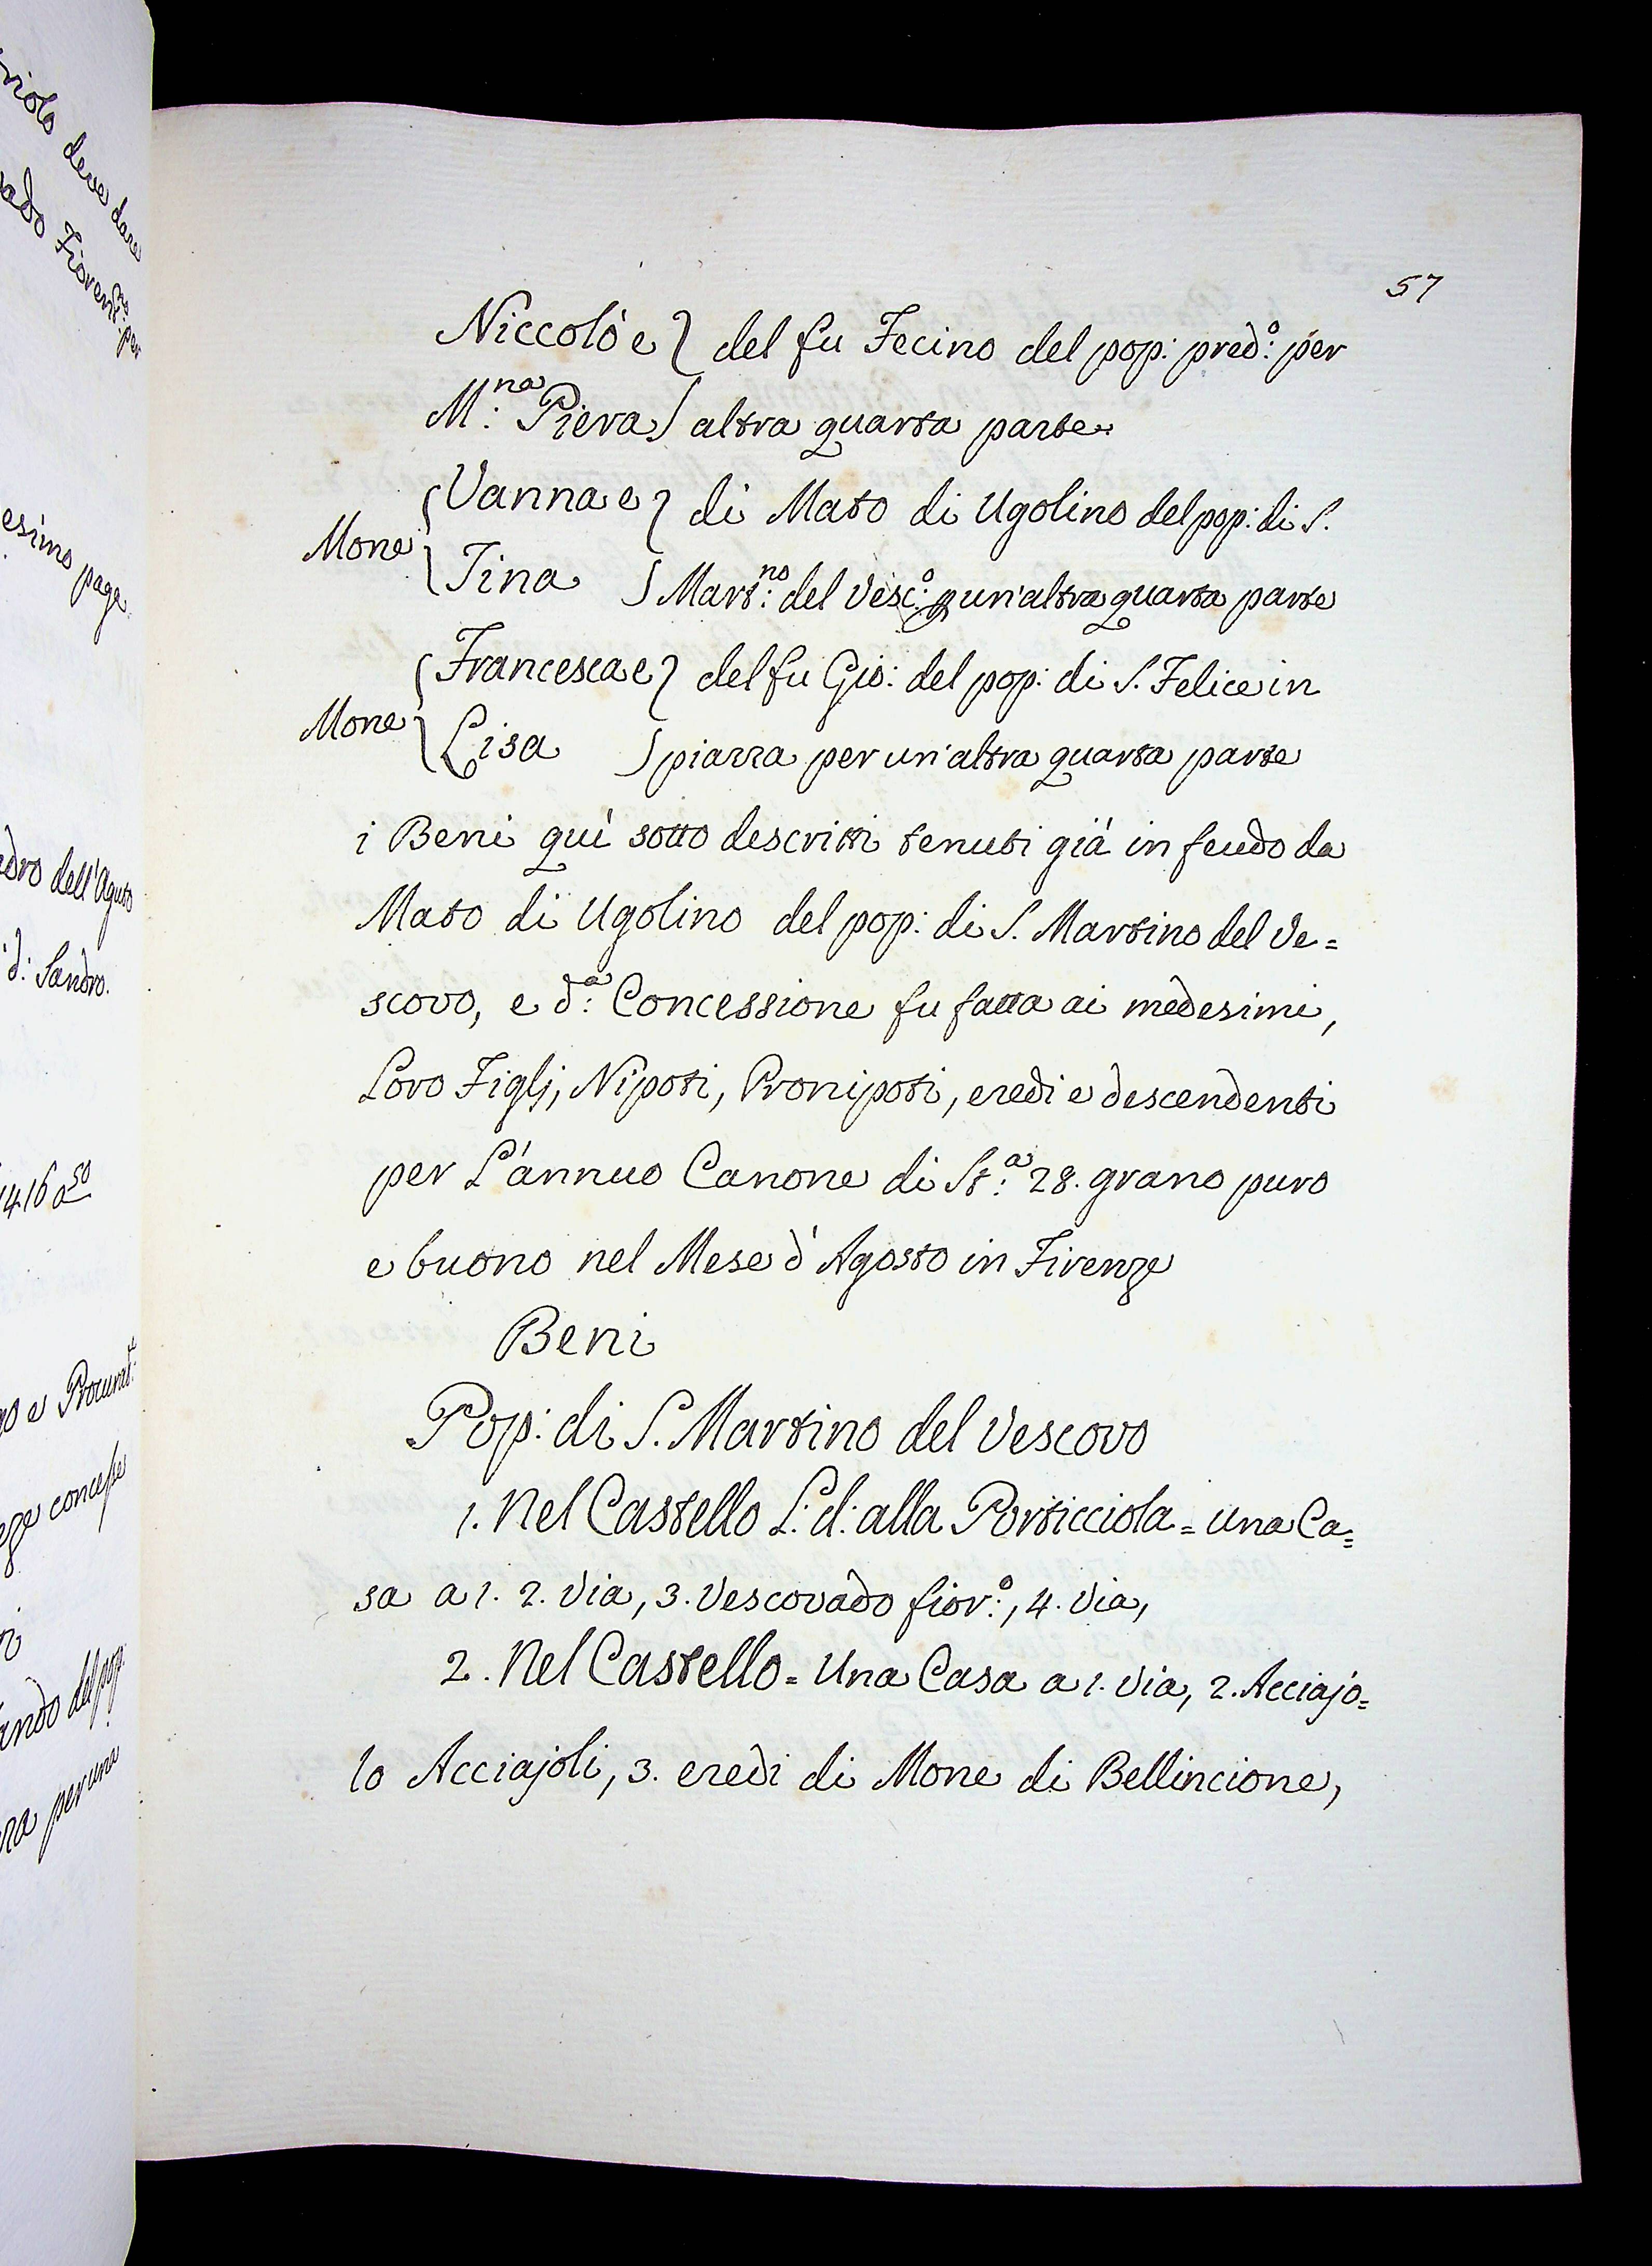 57
Niccolò e } del fu Fecino del pop: pred:º per
M:na Piera } altra quarta parte
{ Vanna e } di Mato di Ugolino del pop: di S.
Mone { Tina } Mart:no del Vesc:º p un'altra quarta parte
{ Francesca e } del fu Gio: del pop: di S. Felice in
Mone { Lisa } piazza per un'altra quarta parte
i Beni quì sotto descritti tenuti già in feudo da
Mato di Ugolino del pop: di S. Martino del Ve=
scovo, e d:a Concessione fu fatta ai medesimi,
Loro Figlj, Nipoti, Pronipoti, eredi e descendenti
per L'annuo Canone di St:a 28. grano puro
e buono nel Mese d'Agosto in Firenze
Beni
Pop: di S. Martino del Vescovo
1. Nel Castello L: d: alla Porticciola = una Ca=
sa a 1. 2. Via, 3. Vescovado fior:º, 4. Via,
2. Nel Castello = Una Casa a 1. Via, 2. Acciajo=
lo Acciajoli, 3. eredi di Mone di Bellincione,
deve dare
esimo page
dell'Aguto
d: Sandro.
1416
e Procurat:
concesse
del pop:
per una